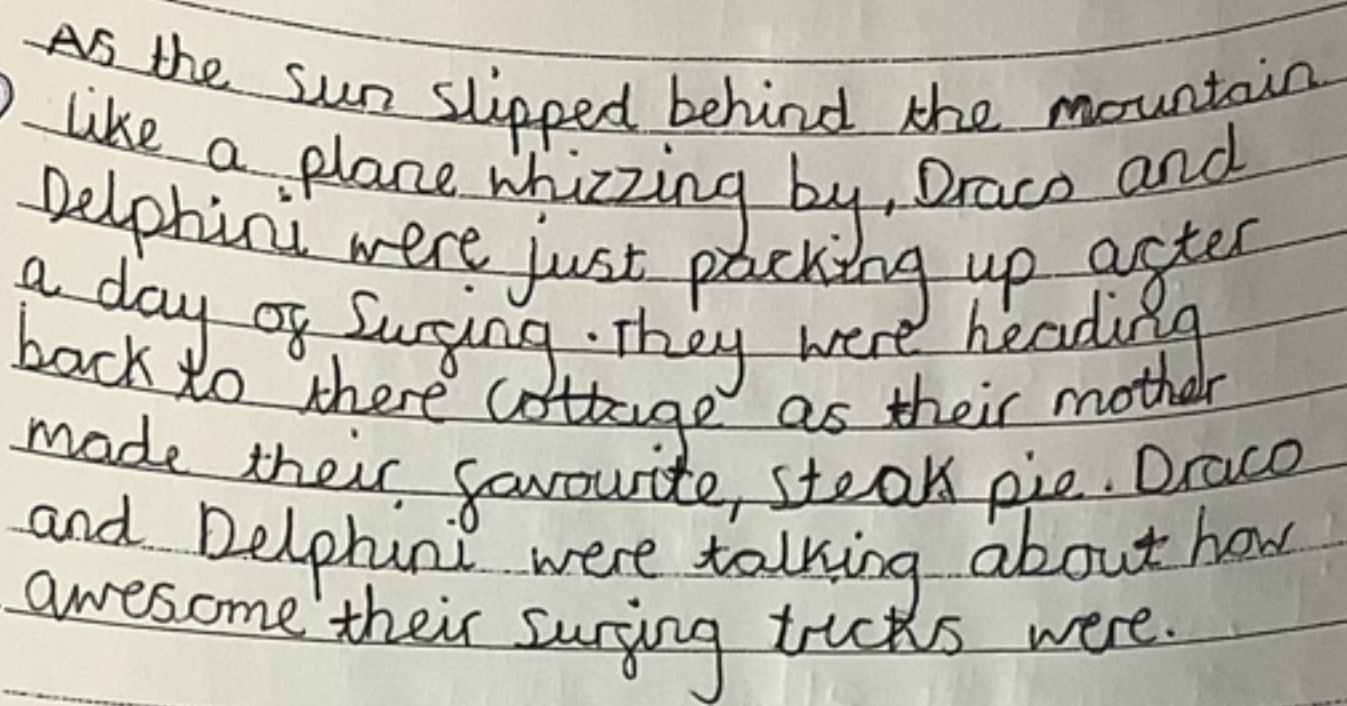 As the sun slipped behind the mountain
like a plane whizzing by, Draco and
Delphini were just packing up after
a day of Surfing. They were heading
back to there cottage as their mother
made their favourite, steak pie. Draco
and Delphini were talking about how
awesome their surfing tricks were.